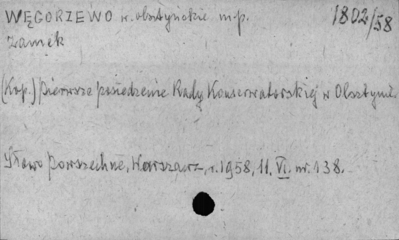 WĘGORZEWO w. olsztyńskie m.p.
1802/58
Zamek
(Kop.) Pierwsze posiedzenie Rady Konserwatorskiej w Olsztynie.
Słowo Powszechne, Warszawa, r. 1958, 11. VI. nr. 138.